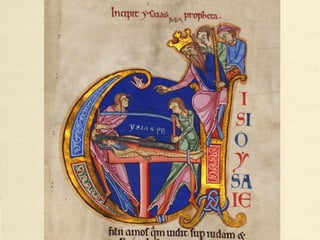 Incipit ysaias propheta.
YSIAS·PR
I
SI
O
Y
SA
IE
filii amos q̄m uidit sup iudam &